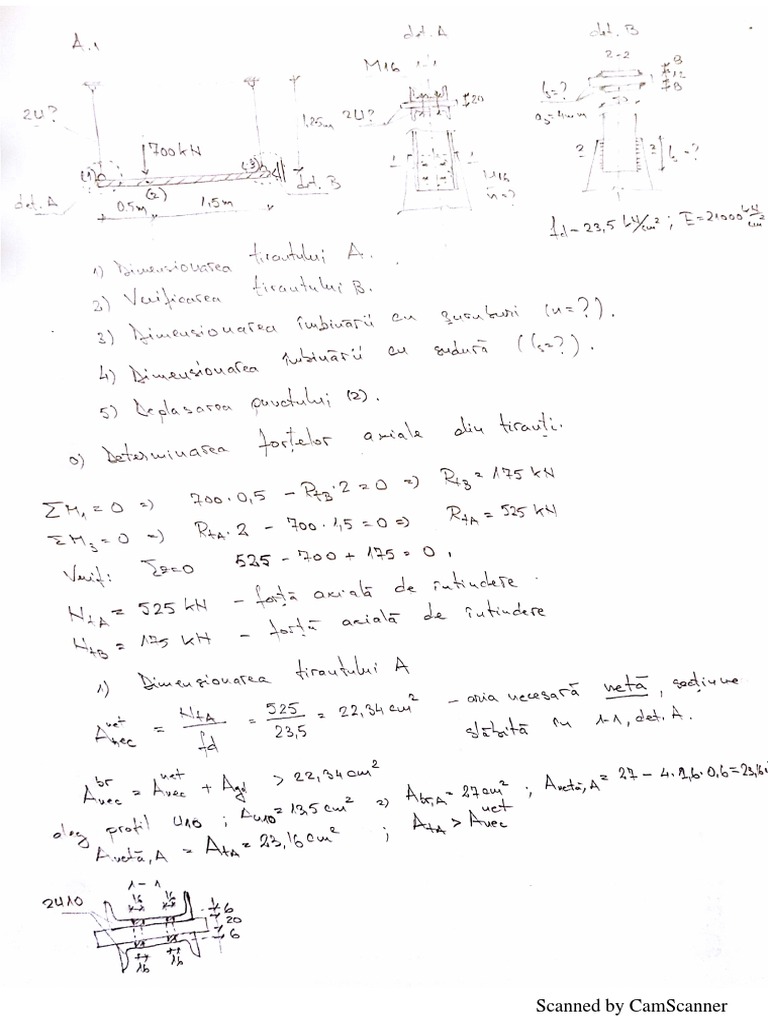 A.1
det. A
det. B
M16
1-1
2-2
2U?
2U?
20
8
12
8
ls=?
as=4mm
1,25m
700kN
(1)
(2)
(3)
det. A
det. B
0.5m
1,5m
M16
n=?
2
2
ls=?
fd=23,5 kN/cm²; E=21000 kN/cm²
1) Dimensionarea tirantului A.
2) Verificarea tirantului B.
3) Dimensionarea îmbinării cu șuruburi (n=?).
4) Dimensionarea îmbinării cu sudură (ls=?).
5) Deplasarea punctului (2).
0) Determinarea forțelor axiale din tiranți.
ΣM1=0 => 700·0,5 - RtB·2=0 => RtB=175 kN
ΣM3=0 => RtA·2 - 700·1,5=0 => RtA=525 kN
Verif: Σz=0 525-700+175=0.
NtA=525 kN - forță axială de întindere.
NtB=175 kN - forță axială de întindere
1) Dimensionarea tirantului A
Anec^net = NtA/fd = 525/23,5 = 22,34cm² - aria necesară netă, secțiune
slăbită în 1-1, det. A.
Anec^br = Anec^net + Agă > 22,34cm²
aleg profil U10; AU10=13,5cm² => Abr,A=27cm²; Anetă,A=27-4·1,6·0,6=23,16
Anetă,A = AtA=23,16cm²; AtA > Anec^net
1-1
2U10
16
16
6
20
6
16
Scanned by CamScanner